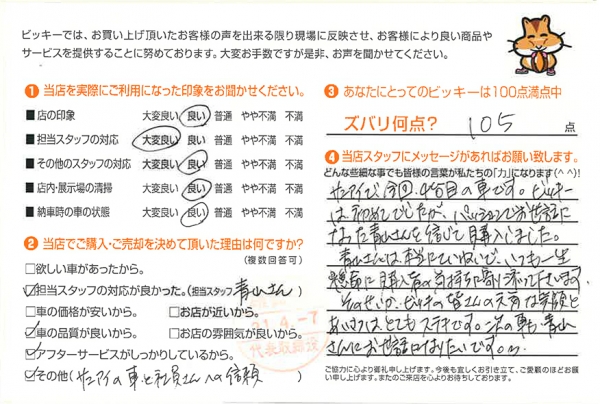 ビッキーでは、お買い上げ頂いたお客様の声を出来る限り現場に反映させ、お客様により良い商品や
サービスを提供することに努めております。大変お手数ですが是非、お声を聞かせてください。
1 当店を実際にご利用になった印象をお聞かせください。
■店の印象 大変良い 良い 普通 やや不満 不満
■担当スタッフの対応 大変良い 良い 普通 やや不満 不満
■その他のスタッフの対応 大変良い 良い 普通 やや不満 不満
■店内・展示場の清掃 大変良い 良い 普通 やや不満 不満
■納車時の車の状態 大変良い 良い 普通 やや不満 不満
2 当店でご購入・ご売却を決めて頂いた理由は何ですか?
(複数回答可)
□欲しい車があったから。
☑担当スタッフの対応が良かった。(担当スタッフ 青山さん)
□車の価格が安いから。 □お店が近いから。
☑車の品質が良いから。 □お店の雰囲気が良いから。
☑アフターサービスがしっかりしているから。
☑その他(サンアイの車と社員さんへの信頼)
代表取締役
3 あなたにとってのビッキーは100点満点中
ズバリ何点? 105 点
4 当店スタッフにメッセージがあればお願い致します。
どんな些細な事でも皆様の言葉が私たちの「力」になります(^^)!
サンアイで今回、4台目の車です。ビッキー
は初めてでしたが、パッションでお世話に
なった青山さんを信じて購入しました。
青山さんは本当にていねいで、いつも一生
懸命に購入者の気持ちに寄り添って下さいます。
そのせいか、ビッキーの皆さんの元気な笑顔と
あいさつは、とてもステキです。次の車も、青山
さんにお世話になりたいです。
ご協力に心より御礼申し上げます。今後も宜しくお引き立て、ご愛顧のほどお願
い申し上げます。またのご来店を心よりお待ちしております。